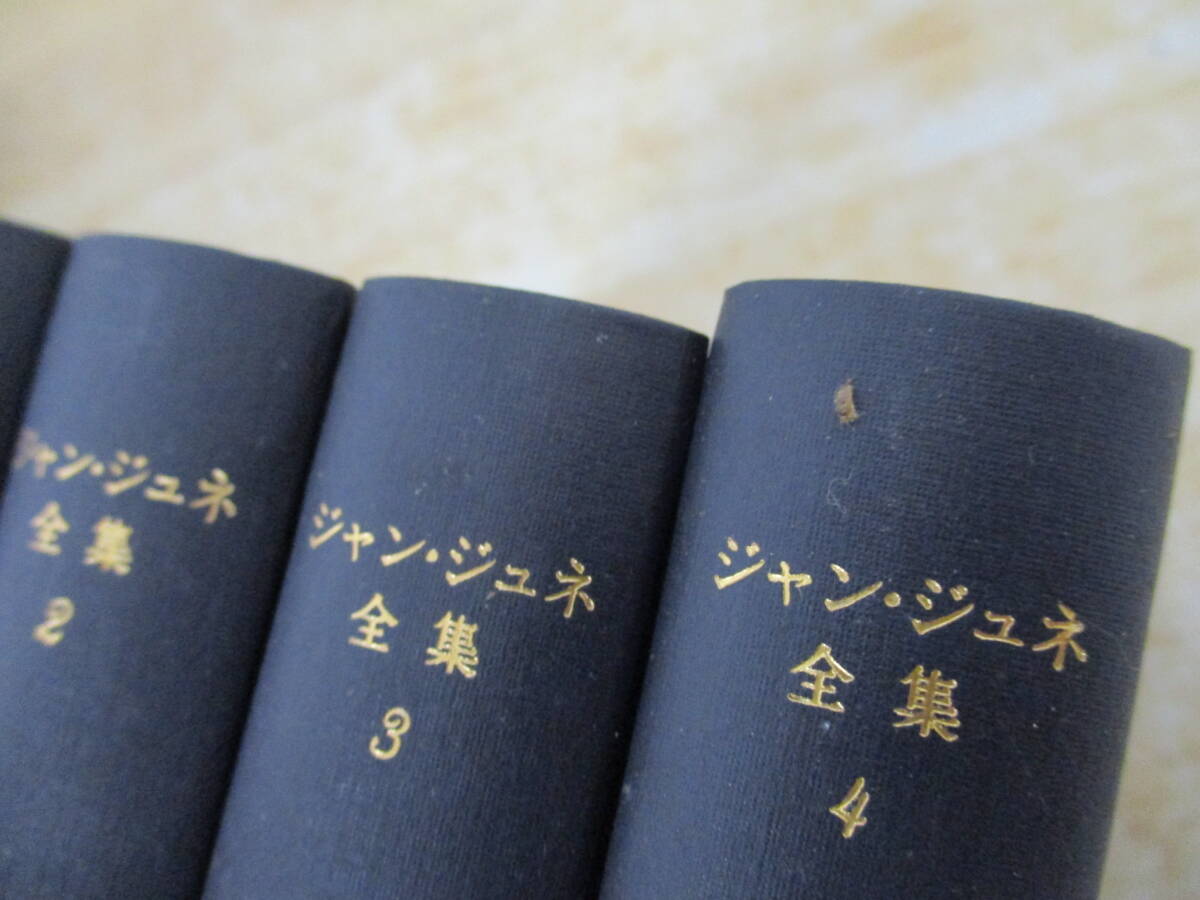 ジャン・ジュネ
全集
2
ジャン・ジュネ
全集
3
ジャン・ジュネ
全集
4